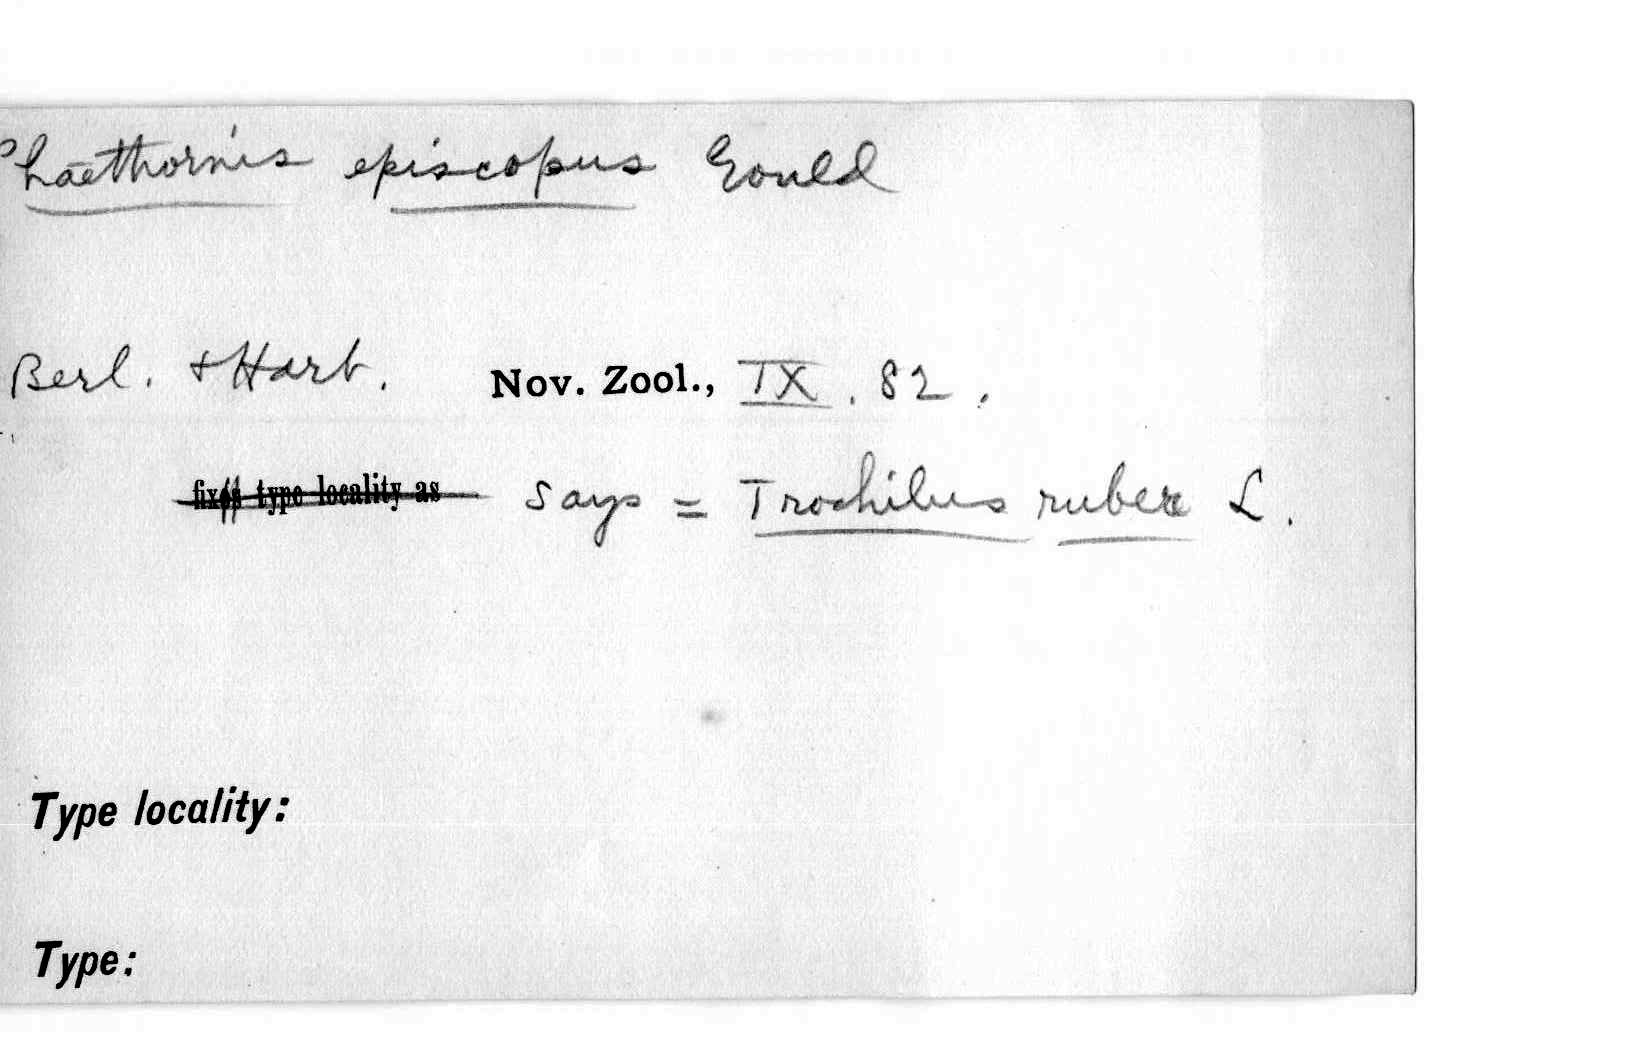 Phaethornis episcopus Gould
Berl. + Hart. Nov. Zool., IX. 82.
fixes type locality as says = Trochilus ruber L.
Type locality:
Type: